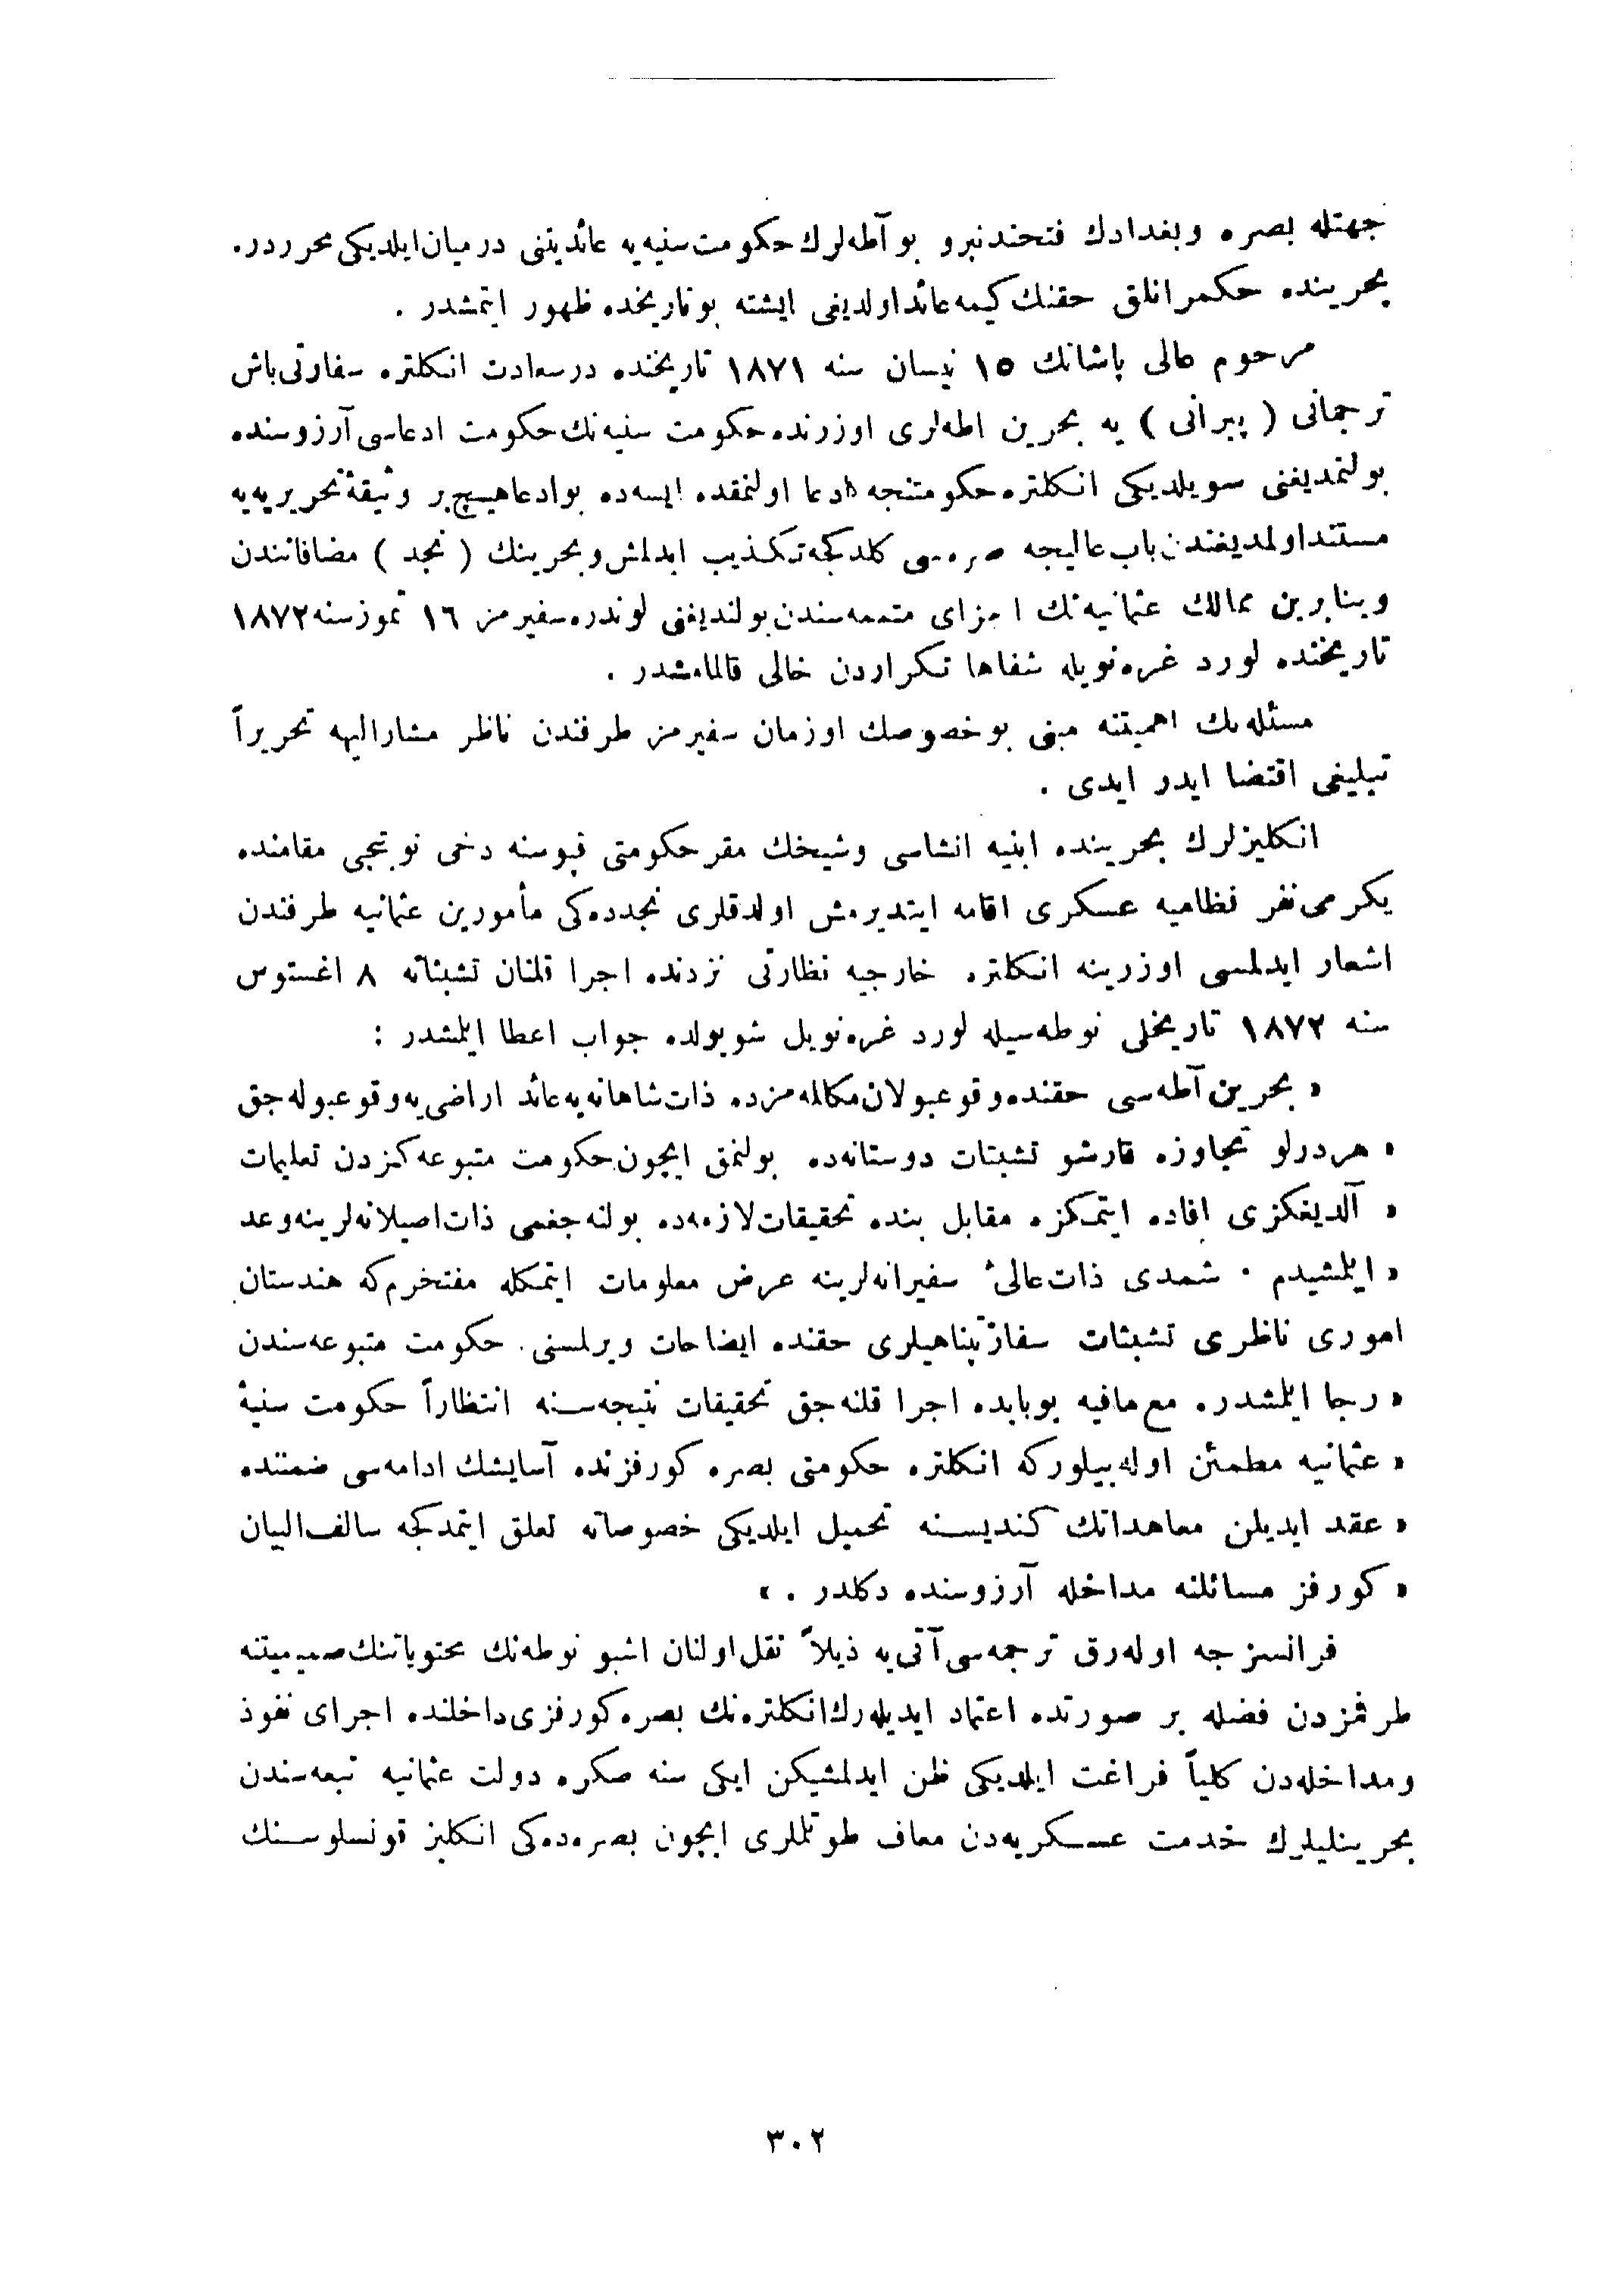 جهتله بصره وبغدادك فتحندنبرو بو آطه‌لرك حكومت سنیه‌یه عائدیتنی درمیان ایلدیكی محرردر.
بحرینده حكمرانلق حقنك كیمه عائد اولدیغی ایشته بو تاریخده ظهور ایتمشدر .
مرحوم عالی پاشانك ١٥ نیسان سنه ١٨٧١ تاریخنده درسعادت انكلتره سفارتی باش
ترجمانی ( پیرانی ) یه بحرین اطه‌لری اوزرنده حكومت سنیه‌نك حكومت ادعاسی آرزوسنده
بولنمدیغنی سویلدیكی انكلتره حكومتنجه ادعا اولنمقده ایسه‌ده بوادعا هیچ بر وثیقهٔ تحریریه‌یه
مستند اولمدیغندن باب عالیجه صره‌سی كلدكجه تكذیب ایدلمش و بحرینك ( نجد ) مضافاتندن
وبنابرین ممالك عثمانیه‌نك اجزای متممه‌سندن بولندیغنی لوندره سفیرمز ١٦ تموز سنه ١٨٧٢
تاریخنده لورد غره‌نویله شفاها تكراردن خالی قالمامشدر .
مسئله‌نك اهمیتنه مبنی بو خصوصك اوزمان سفیرمز طرفندن ناظر مشارالیهه تحریراً
تبلیغی اقتضا ایدر ایدی .
انكلیزلرك بحرینده ابنیه انشاسی وشیخك مقر حكومتی قپوسنه دخی نوبتجی مقامنده
یكرمی نفر نظامیه عسكری اقامه ایتدیرمش اولدقلری نجدده‌كی مأمورین عثمانیه طرفندن
اشعار ایدلمسی اوزرینه انكلتره خارجیه نظارتی نزدنده اجرا قلنان تشبثاته ٨ اغستوس
سنه ١٨٧٢ تاریخلی نوطه‌سیله لورد غره‌نویل شو یولده جواب اعطا ایلمشدر :
« بحرین آطه‌سی حقنده وقوعبولان مكالمه‌مزده ذات شاهانه‌یه عائد اراضی‌یه وقوعبوله‌جق
« هر درلو تجاوزه قارشو تشبثات دوستانه‌ده بولنمق ایچون حكومت متبوعه‌كزدن تعلیمات
« آلدیغكزی افاده ایتمكزه مقابل بنده تحقیقات لازمه‌ده بولنه‌جغمی ذات اصیلانه‌لرینه وعد
« ایلمشیدم . شمدی ذات عالیٔ سفیرانه‌لرینه عرض معلومات ایتمكله مفتخرم كه هندستان
اموری ناظری تشبثات سفارتپناهیلری حقنده ایضاحات ویرلمسنی حكومت متبوعه‌سندن
« رجا ایلمشدر. مع مافیه بوبابده اجرا قلنه‌جق تحقیقات نتیجه‌سنه انتظاراً حكومت سنیهٔ
« عثمانیه مطمئن اوله‌بیلور كه انكلتره حكومتی بصره كورفزنده آسایشك ادامه‌سی ضمننده
« عقد ایدیلن معاهداتك كندیسنه تحمیل ایلدیكی خصوصاته تعلق ایتمدكجه سالف البیان
« كورفز مسائلنه مداخله آرزوسنده دكلدر . »
فرانسزجه اوله‌رق ترجمه‌سی آتی‌یه ذیلاً نقل اولنان اشبو نوطه‌نك محتویاتنك صمیمیتنه
طرفمزدن فضله بر صورتده اعتماد ایدیله‌رك انكلتره‌نك بصره كورفزی داخلنده اجرای نفوذ
ومداخله‌دن كلیاً فراغت ایلدیكی ظن ایدلمشیكن ایكی سنه صكره دولت عثمانیه تبعه‌سندن
بحرینلیلرك خدمت عسكریه‌دن معاف طوتلملری ایچون بصره‌ده‌كی انكلیز قونسلوسنك
٣٠٢